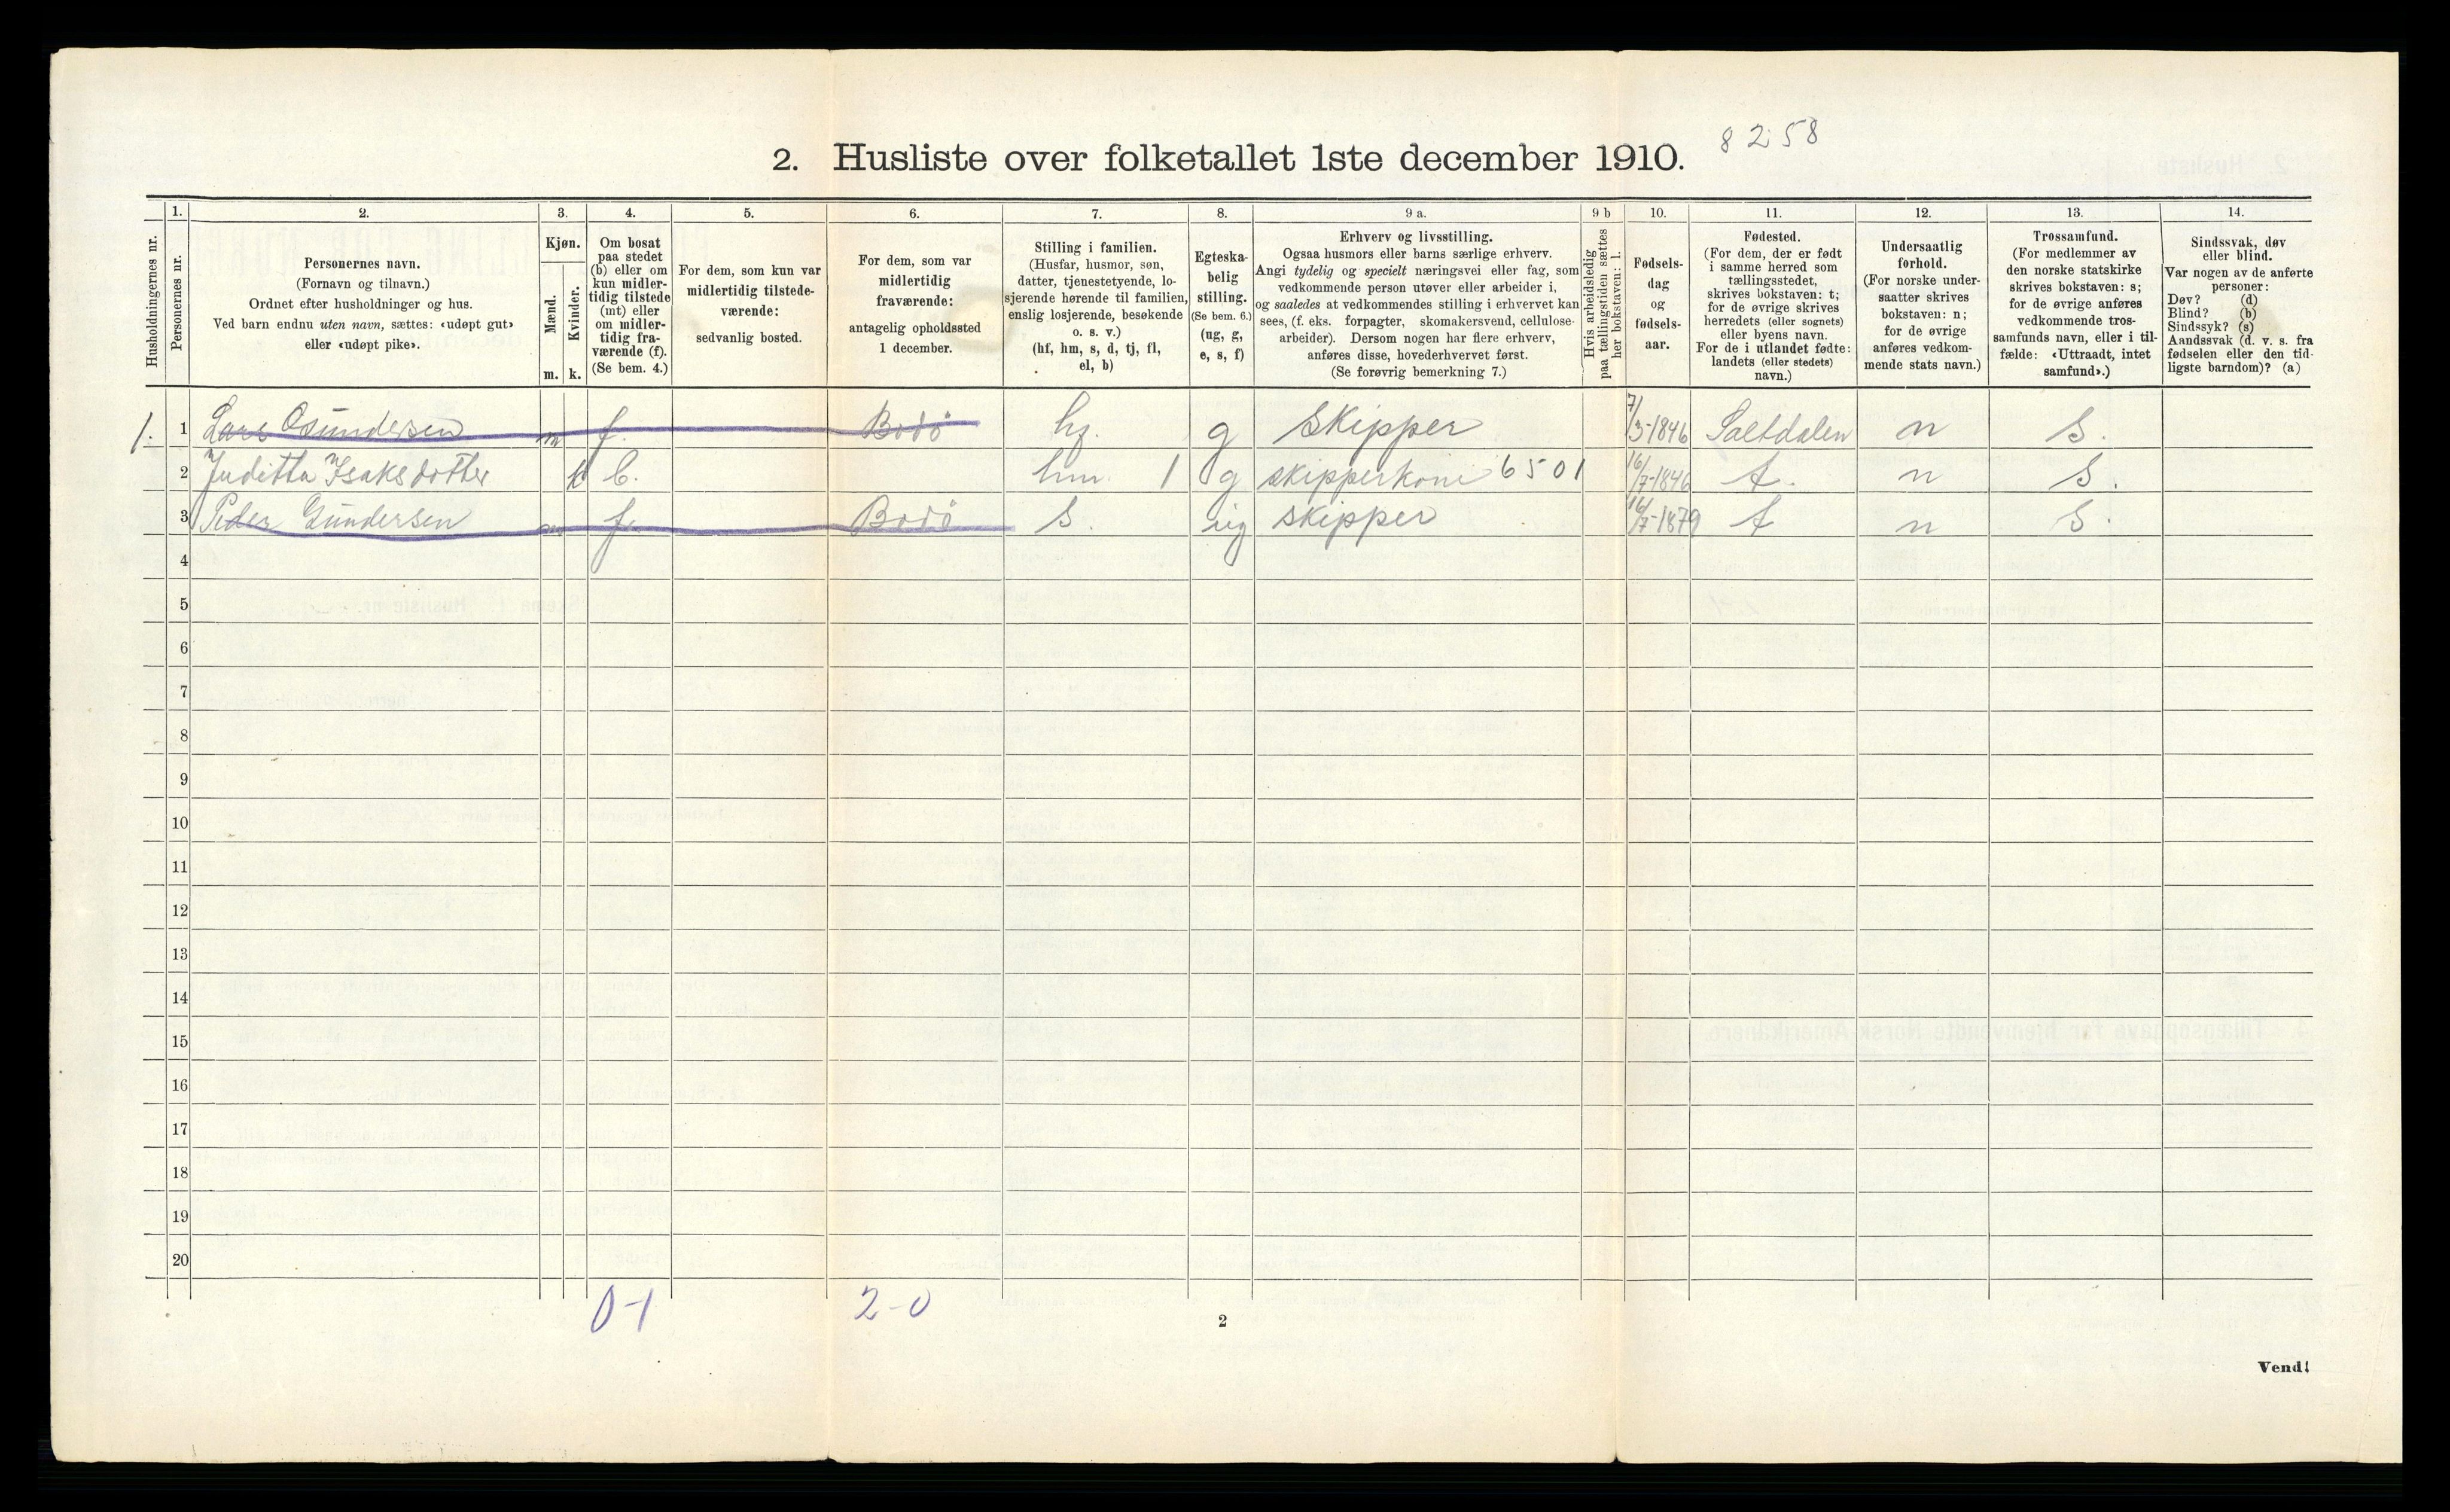 8258
2. Husliste over folketallet 1ste december 1910.
Husholdningernes nr.
1. Personernes nr.
2. Personernes navn.
(Fornavn og tilnavn.)
Ordnet efter husholdninger og hus.
Ved barn endnu uten navn, sættes: «udøpt gut»
eller «udøpt pike».
3. Kjøn.
Mænd. m.
Kvinder. k.
4. Om bosat
paa stedet
(b) eller om
kun midler-
tidig tilstede
(mt) eller
om midler-
tidig fra-
værende (f).
(Se bem. 4.)
5. For dem, som kun var
midlertidig tilstede-
værende:
sedvanlig bosted.
6. For dem, som var
midlertidig
fraværende:
antagelig opholdssted
1 december.
7. Stilling i familien.
(Husfar, husmor, søn,
datter, tjenestetyende, lo-
sjerende hørende til familien,
enslig losjerende, besøkende
o. s. v.)
(hf, hm, s, d, tj, fl,
el, b)
8. Egteska-
belig
stilling.
(Se bem. 6.)
(ug, g,
e, s, f)
9 a. Erhverv og livsstilling.
Ogsaa husmors eller barns særlige erhverv.
Angi tydelig og specielt næringsvei eller fag, som
vedkommende person utøver eller arbeider i,
og saaledes at vedkommendes stilling i erhvervet kan
sees, (f. eks. forpagter, skomakersvend, cellulose-
arbeider). Dersom nogen har flere erhverv,
anføres disse, hovederhvervet først.
(Se forøvrig bemerkning 7.)
9 b Hvis arbeidsledig
paa tællingstiden sættes
her bokstaven: l.
10. Fødsels-
dag
og
fødsels-
aar.
11. Fødested.
(For dem, der er født
i samme herred som
tællingsstedet,
skrives bokstaven: t;
for de øvrige skrives
herredets (eller sognets)
eller byens navn.
For de i utlandet fødte:
landets (eller stedets)
navn.)
12. Undersaatlig
forhold.
(For norske under-
saatter skrives
bokstaven: n;
for de øvrige
anføres vedkom-
mende stats navn.)
13. Trossamfund.
(For medlemmer av
den norske statskirke
skrives bokstaven: s;
for de øvrige anføres
vedkommende tros-
samfunds navn, eller i til-
fælde: «Uttraadt, intet
samfund».)
14. Sindssvak, døv
eller blind.
Var nogen av de anførte
personer:
Døv? (d)
Blind? (b)
Sindssyk? (s)
Aandssvak (d. v. s. fra
fødselen eller den tid-
ligste barndom)? (a)
1. 1 Lars Gundersen m f. Bodö hf. g Skipper 7/3-1846 Saltdalen n S.
2 Juditta Isaksdotter k b. hm 1 g skipperkone 6501 16/7-1846 t. n S.
3 Peder Gundersen m f. Bodö S. ug skipper 16/7-1879 t n S.
4
5
6
7
8
9
10
11
12
13
14
15
16
17
18
19
20
0-1 2-0
2
Vend!